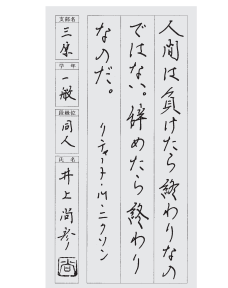 人間は負けたら終わりなの
ではない。辞めたら終わり
なのだ。
リチャード・M・ニクソン
支部名
三原
学年
一般
段級位
同人
氏名
井上尚彦
尚